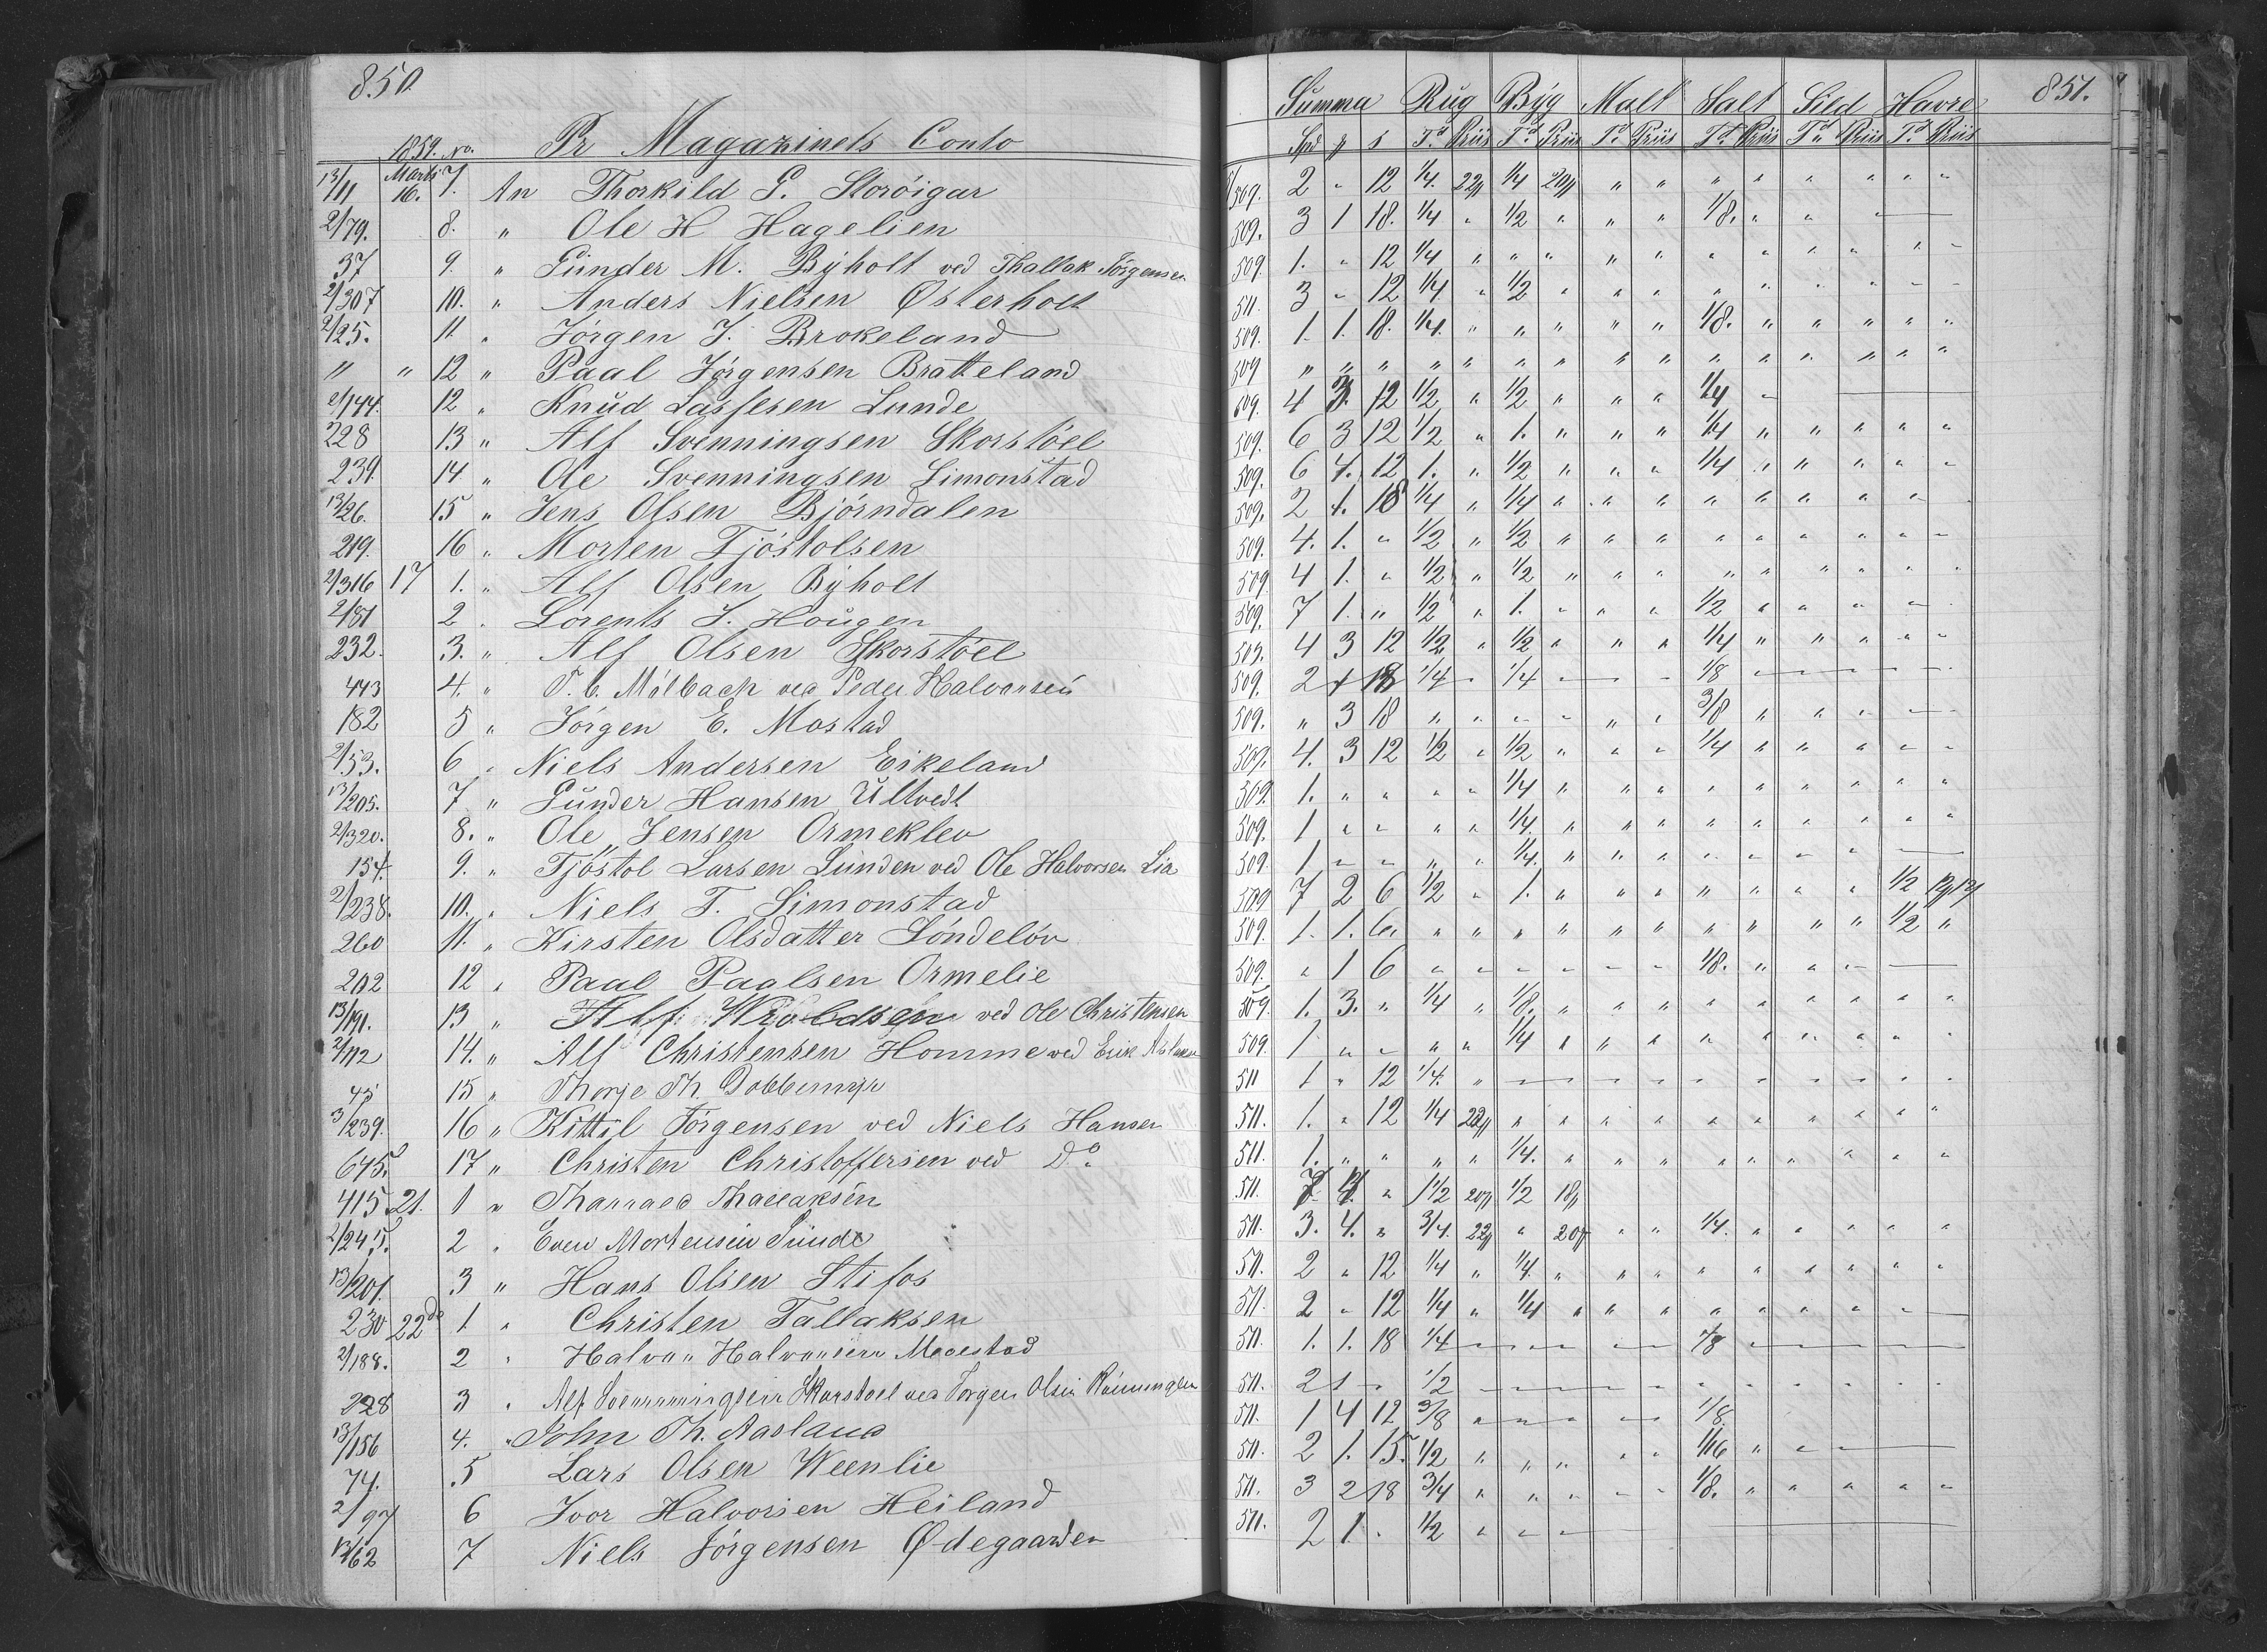 850.
1859. No. Pr Magazinets Conto
13/11 Marts 16. 7. An Thorkild G. Storöigar
2/79. 8. " Ole H Hagelien
37 9. " Gunder M. Byholt ved Thallak Jörgensen
2/307 10. " Anders Nielsen Østerholt
2/25. 11 " Jörgen J. Brokeland
" " 12 " Paal Jörgensen Bratteland
2/144. 12 " Knud Lassesen Lunde
228 13 " Alf Svenningsen Skorstöel
239. 14. " Ole Svenningsen Simonstad
13/26. 15 " Jens Olsen Björndalen
219. 16 " Morten Tjöstolsen
2/316 17 1. " Alf Olsen Byholt
2/81 2 " Lorents J. Hougen
232. 3. " Alf Olsen Skorstöel
443 4. " P. C. Mölbach ved Peder Halvorsen
182 5 " Jörgen E. Mostad
2/53. 6 " Niels Andersen Eikeland
13/205. 7 " Gunder Hansen Ultvedt
2/320. 8. " Ole Jensen Ormeklev
154. 9. " Tjöstol Larsen Lunden ved Ole Halvorsen Lia
2/238. 10. " Niels T. Simonstad
260 11. " Kirsten Olsdatter Söndelöv
202 12 " Paal Paalsen Ormelie
13/191. 13 " Alf Wroldsen ved Ole Christensen
2/112 14. " Alf Christensen Homme ved Erik Aslaksen
45 15 " Therje Th. Dobbemyr
3/239. 16 " Kittil Jörgensen ved Niels Hansen
645. 17 " Christen Christoffersen ved Do.
415 21. 1 " Tharrald Thallaksen
2/245. 2 " Even Mortensen Sunde
13/201. 3 " Hans Olsen Stifos
230 22de 1 " Christen Tallaksen
2/188. 2 " Halvor Halvorsen Moestad
228 3 " Alf Svenningsen Skorstoel ved Jorgen Olsen
13/156 4. " John Th. Aasland
74. 5 Lars Olsen Weenlie
2/97 6 Ivor Halvorsen Heiland
13/162 7 Niels Jörgensen Ødegaarden
851.
Summa Rug Byg Malt Salt Sild Havre
Spd # s Td Priis Td Priis Td Priis Td Priis Td Priis Td Priis
509. 2 " 12 1/4. 22# 1/4 20# " " " " " " " "
509. 3 1 18. 1/4 " 1/2 " " " 1/8. " " "
509. 1. " 12 1/4 " " " " " " " " " " "
511. 3 " 12 1/4 " 1/2 " " " " " " " " "
509. 1. 1. 18. 1/4. " " " " " 1/8. " " " " "
509 " " " " " " " " " " " " " " "
509. 4 3. 12 1/2 " 1/2 " " " 1/4 "
509. 6 3 12 1/2 " 1. " " " 1/4 " " " " "
509. 6 4. 12 1. " 1/2 " " " 1/4 " " " " "
509. 2 1. 18 1/4 " 1/4 " " " " " " " " "
509. 4. 1. " 1/2 " 1/2 " " " " " " " " "
509 4 1. " 1/2 " 1/2 " " " " " " " " "
509. 7 1. " 1/2 " 1. " " " 1/2 " " " " "
509. 4 3 12 1/2 " 1/2 " " " 1/4 " " " " "
509. 2 1 18 1/4 " 1/4 " " " 1/8
509. " 3 18 " " " " " " 3/8 " " " " "
509. 4. 3 12 1/2 " 1/2 " " " 1/4 " " " " "
509. 1. " " " " 1/4 " " " " " " " " "
509. 1 " " " " 1/4. " " " " " " " " "
509 1 " " " " 1/4. " " " " " " "
509 7 2 6 1/2 " 1. " " " " " " " 1/2
509. 1. 1. 6. " " " " " " " " " " 1/2 "
509. " 1 6 " " " " " " 1/8. " " "
509. 1. 3. " 1/4 " 1/8. " " " " " " " " "
509. 1 " " " " 1/4 " " " " " " " " "
511 1 " 12 1/4. "
511. 1. " 12 1/4 22# " " " " " " " " " "
511. 1. " " " " 1/4. " " " " " " " " "
511. 7 4 " 1 1/2 20# 1/2 18#
511. 3. 4. " 3/4. 22# " 20# " " 1/4. " " " " "
511. 2 " 12 1/4 " 1/4. " " " " " " " " "
511. 2 " 12 1/4 " 1/4 " " " " " " " "
511. 1. 1. 18 1/4 1/8
511. 2 1 " 1/2
511. 1 4 12 3/8 " " " " " 1/8.
511. 2 1. 15. 1/2 " " " " " 1/16 " " "
511. 3 2 18 3/4 " " " " " 1/8. " " " " "
511. 2 1 . 1/2 " " "